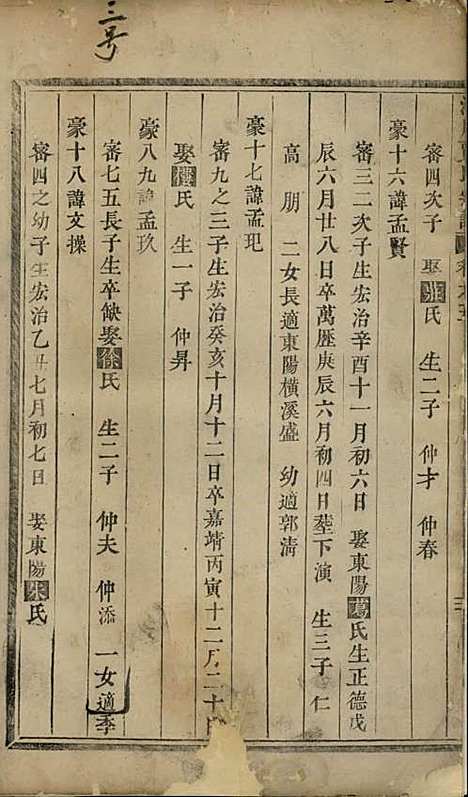 三号
審四次子 娶張氏 生二子 仲才 仲春
豪十六諱孟賢
審三二次子生宏治辛酉十一月初六日 娶東陽葛氏生正德戊
辰六月廿八日卒萬歷庚辰六月初四日塟下演 生三子 仁
高 朋 二女長適東陽橫溪盛 幼適郭清
豪十七諱孟玘
審九之三子生宏治癸亥十月十二日卒嘉靖丙寅十二月二十
娶樓氏 生一子 仲昇
豪八九諱孟玖
審七五長子生卒缺娶徐氏 生二子 仲夫 仲添 一女適季
豪十八諱文操
審四之幼子生宏治乙丑七月初七日 娶東陽朱氏